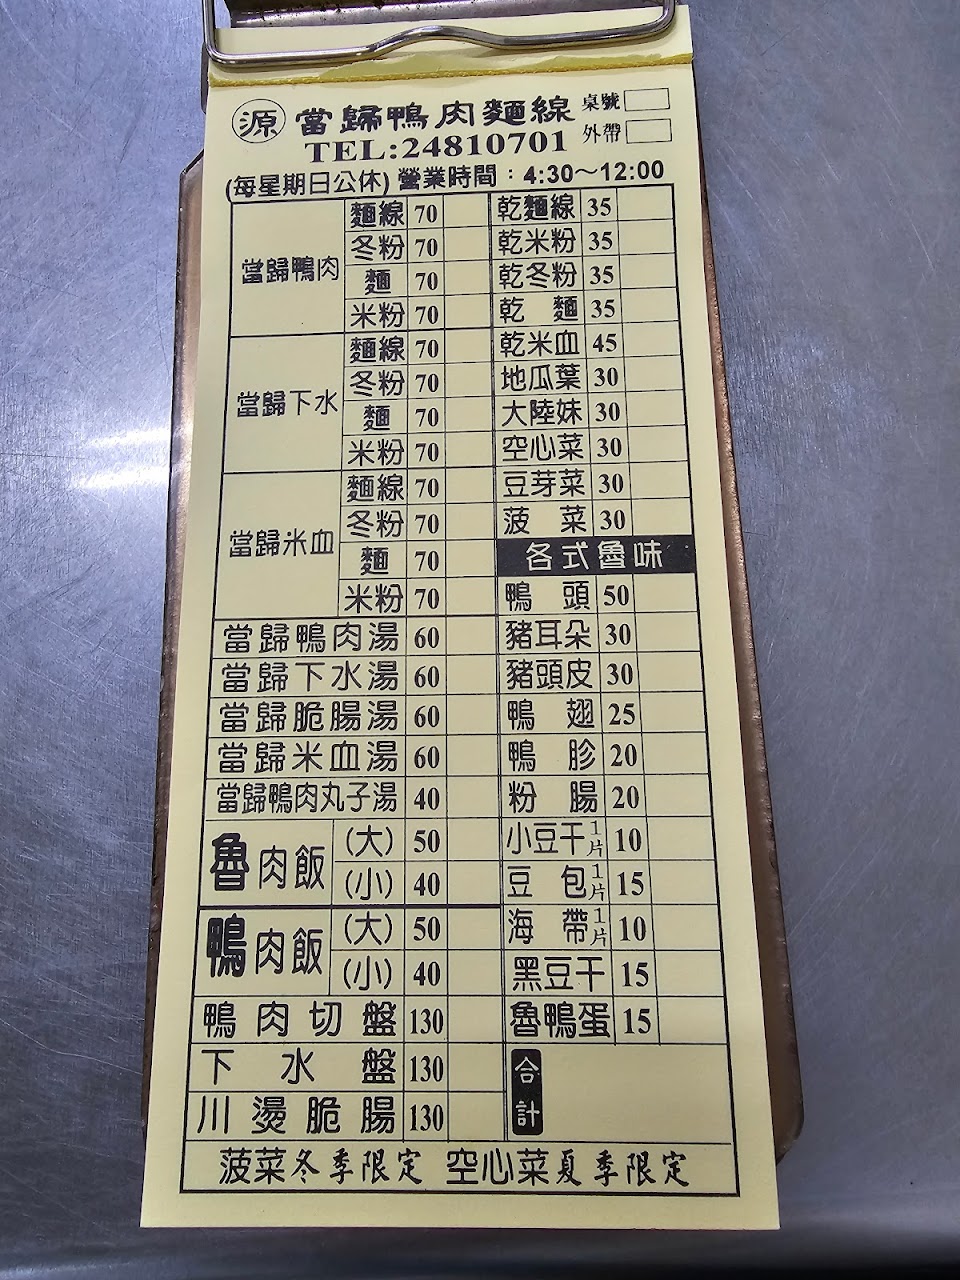 源 當歸鴨肉麵線 桌號
TEL:24810701 外帶
(每星期日公休) 營業時間：4:30～12:00
當歸鴨肉
麵線 70
冬粉 70
麵 70
米粉 70
當歸下水
麵線 70
冬粉 70
麵 70
米粉 70
當歸米血
麵線 70
冬粉 70
麵 70
米粉 70
當歸鴨肉湯 60
當歸下水湯 60
當歸脆腸湯 60
當歸米血湯 60
當歸鴨肉丸子湯 40
魯肉飯
(大) 50
(小) 40
鴨肉飯
(大) 50
(小) 40
鴨肉切盤 130
下水盤 130
川燙脆腸 130
乾麵線 35
乾米粉 35
乾冬粉 35
乾麵 35
乾米血 45
地瓜葉 30
大陸妹 30
空心菜 30
豆芽菜 30
菠菜 30
各式魯味
鴨頭 50
豬耳朵 30
豬頭皮 30
鴨翅 25
鴨胗 20
粉腸 20
小豆干1片 10
豆包1片 15
海帶1片 10
黑豆干 15
魯鴨蛋 15
合計
菠菜冬季限定 空心菜夏季限定